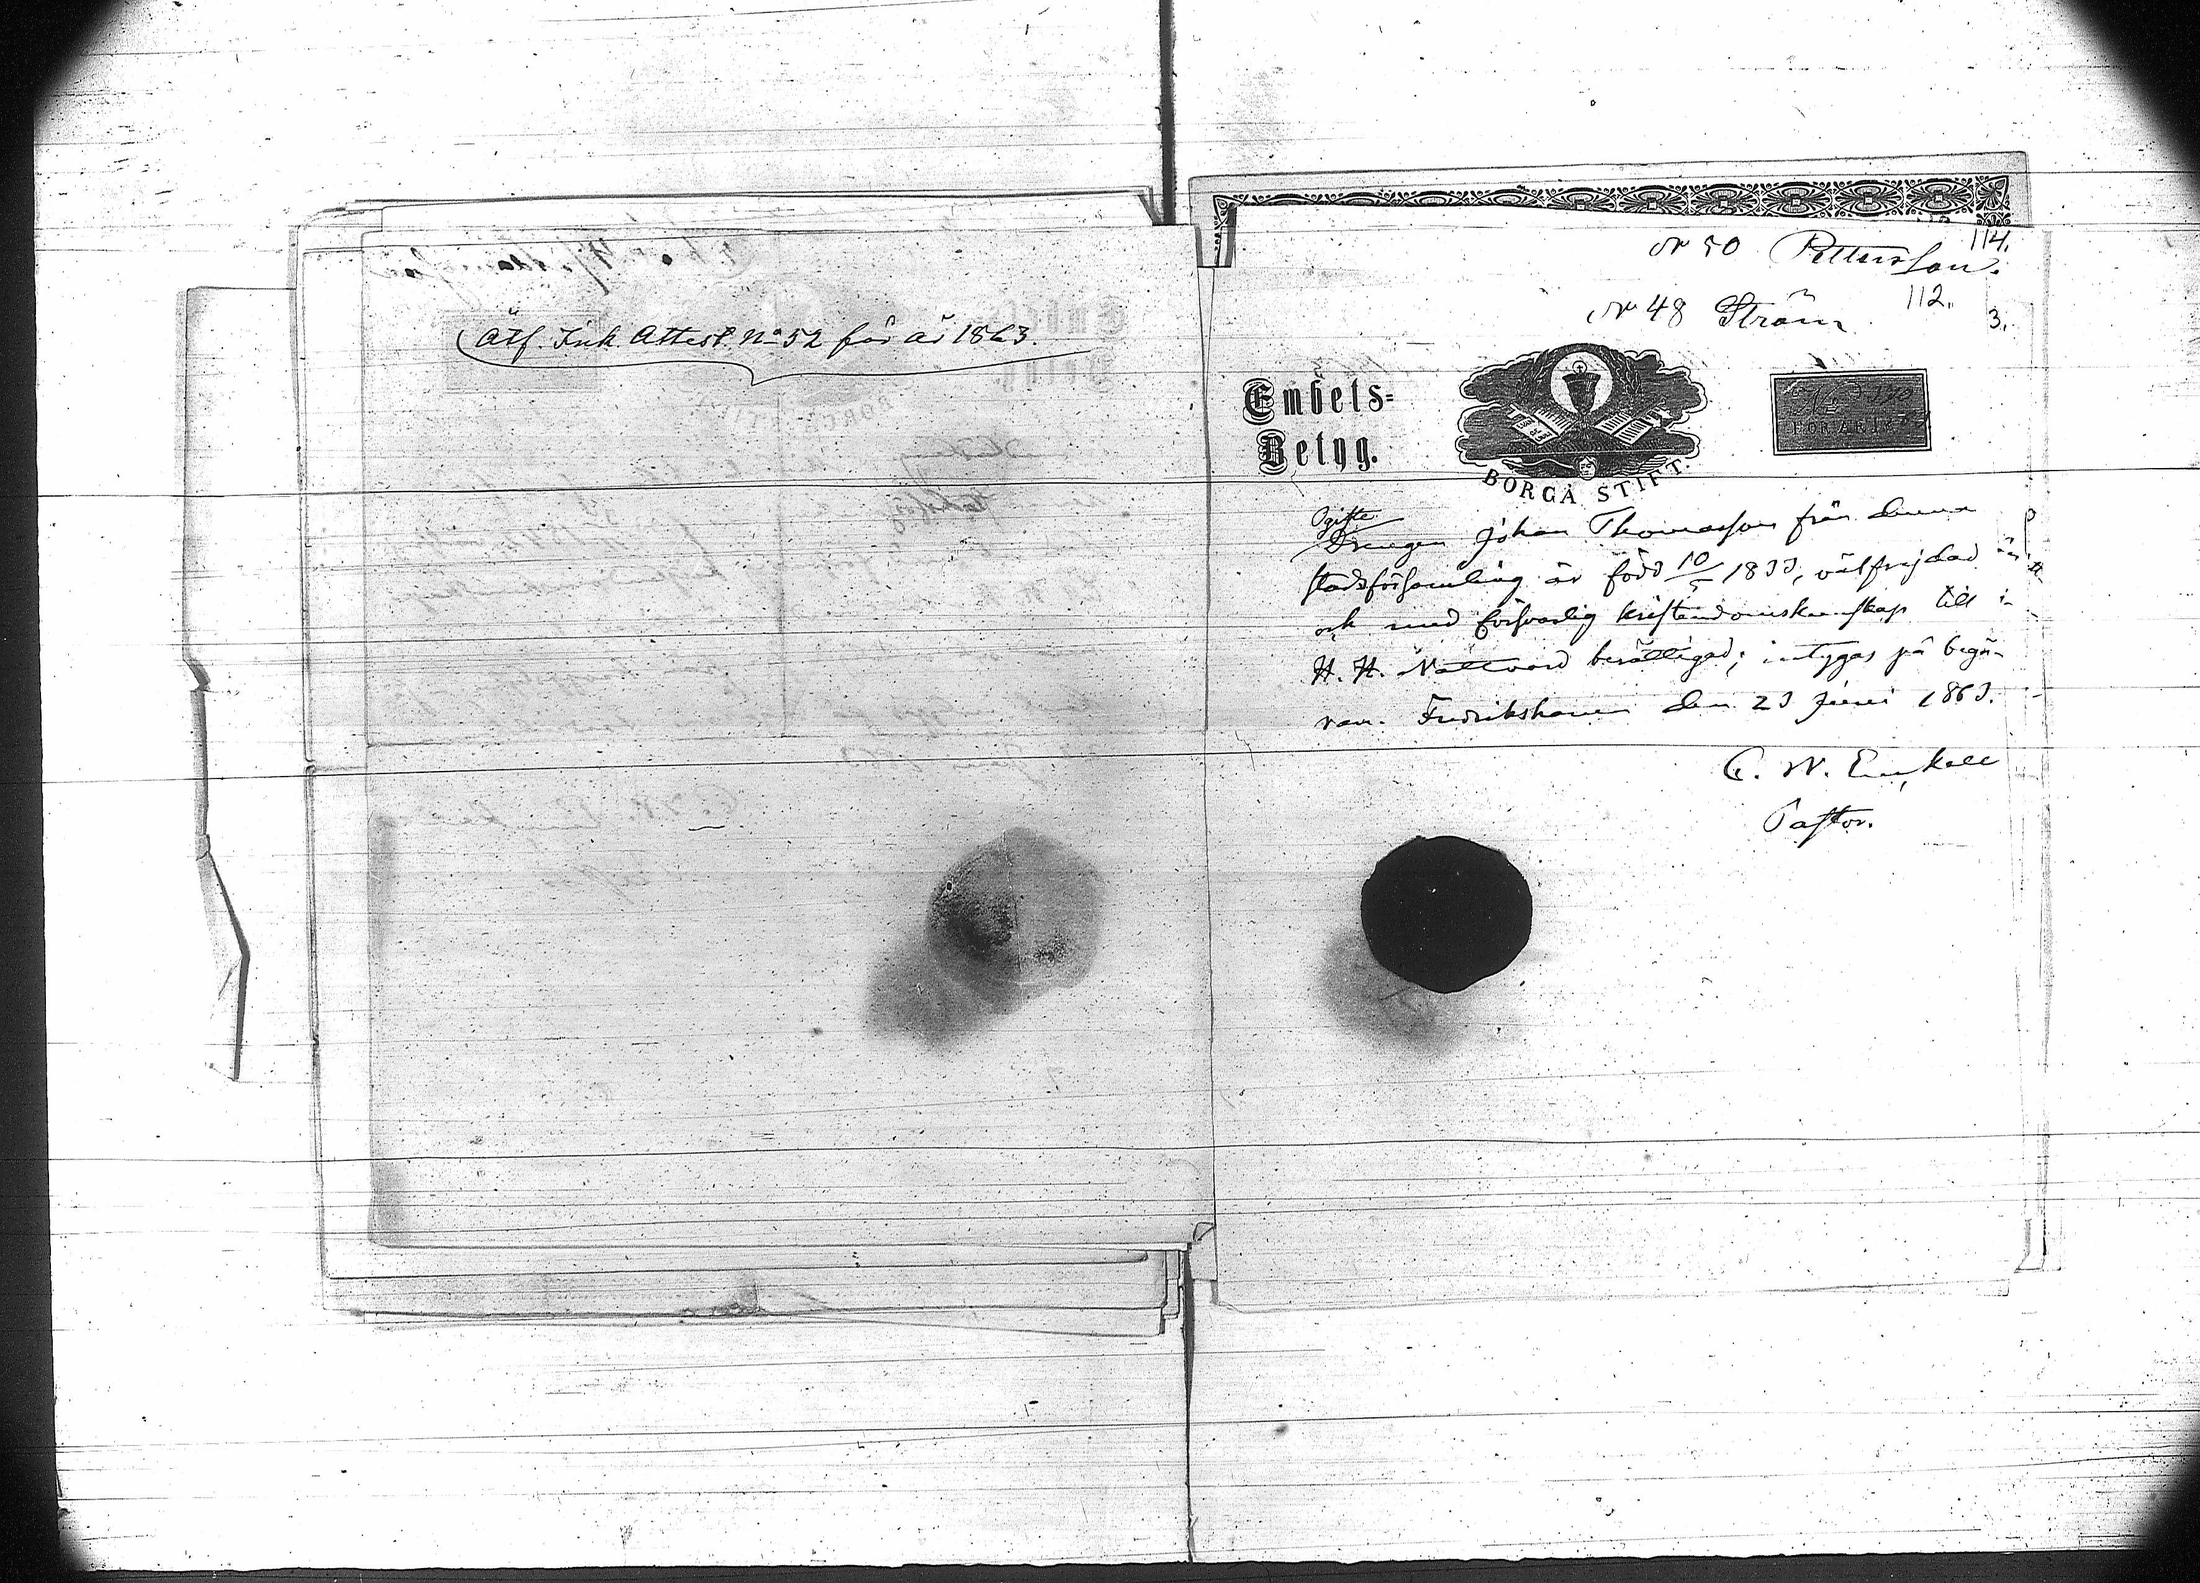 Att. Ink. Attest. No 52 för år 1863.
114.
No 50 Pettersson.
No 48 Ström
112.
3.
Embets-
Betyg.
BORGÅ STIFT.
No
FÖR ÅR 18
Ogifte
Drengen Johan Thomasson från denna
stadsförsamling är född 10/5 1833, välfrejdad
och med försvarlig kristendomskunskap till
H. H. Nattvard berättigad; intygas på begä-
ran. Fredrikshamn den 23 Juni 1863.
C. W.
Pastor.